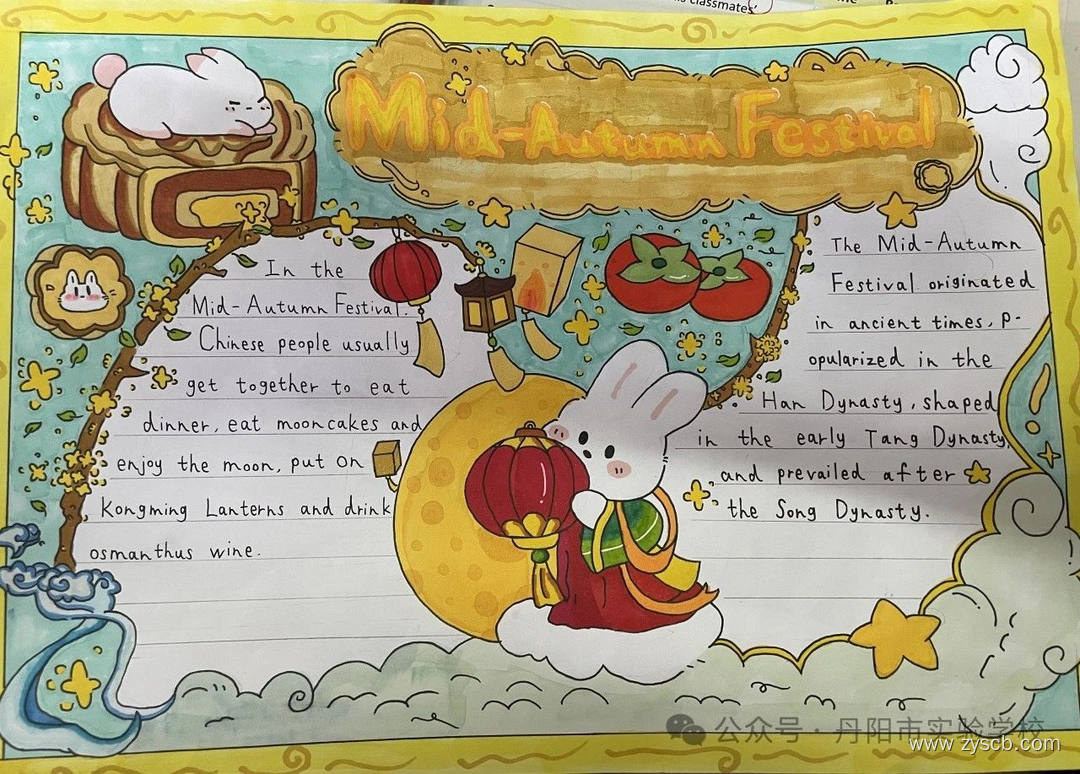 s classmates'
Mid-Autumn Festival
In the
Mid-Autumn Festival.
Chinese people usually
get together to eat
dinner, eat mooncakes and
enjoy the moon, put on
Kongming Lanterns and drink
osmanthus wine.
The Mid-Autumn
Festival originated
in ancient times, p-
opularized in the
Han Dynasty, shaped
in the early Tang Dynasty,
and prevailed after
the Song Dynasty.
公众号·丹阳市实验学校
www.zyscb.com